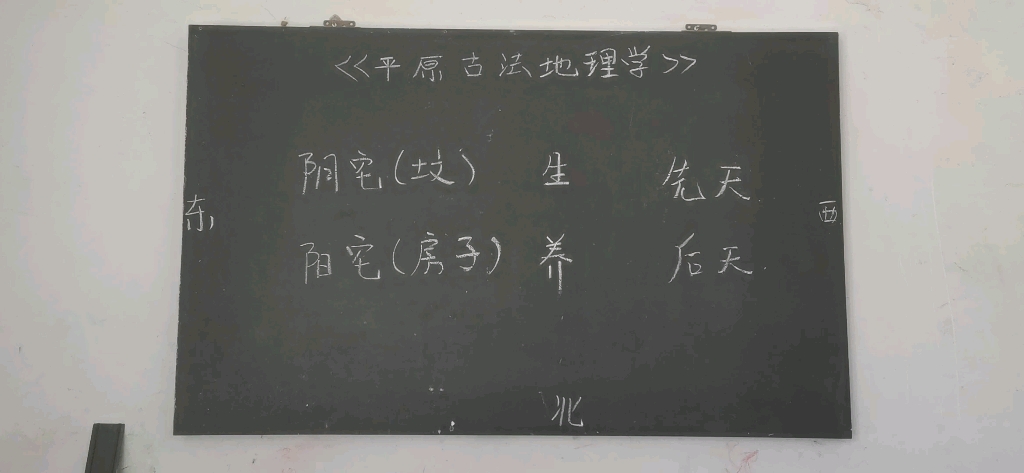 <<平原古法地理学>>
阴宅(坟) 生 先天
东 西
阳宅(房子) 养 后天
北